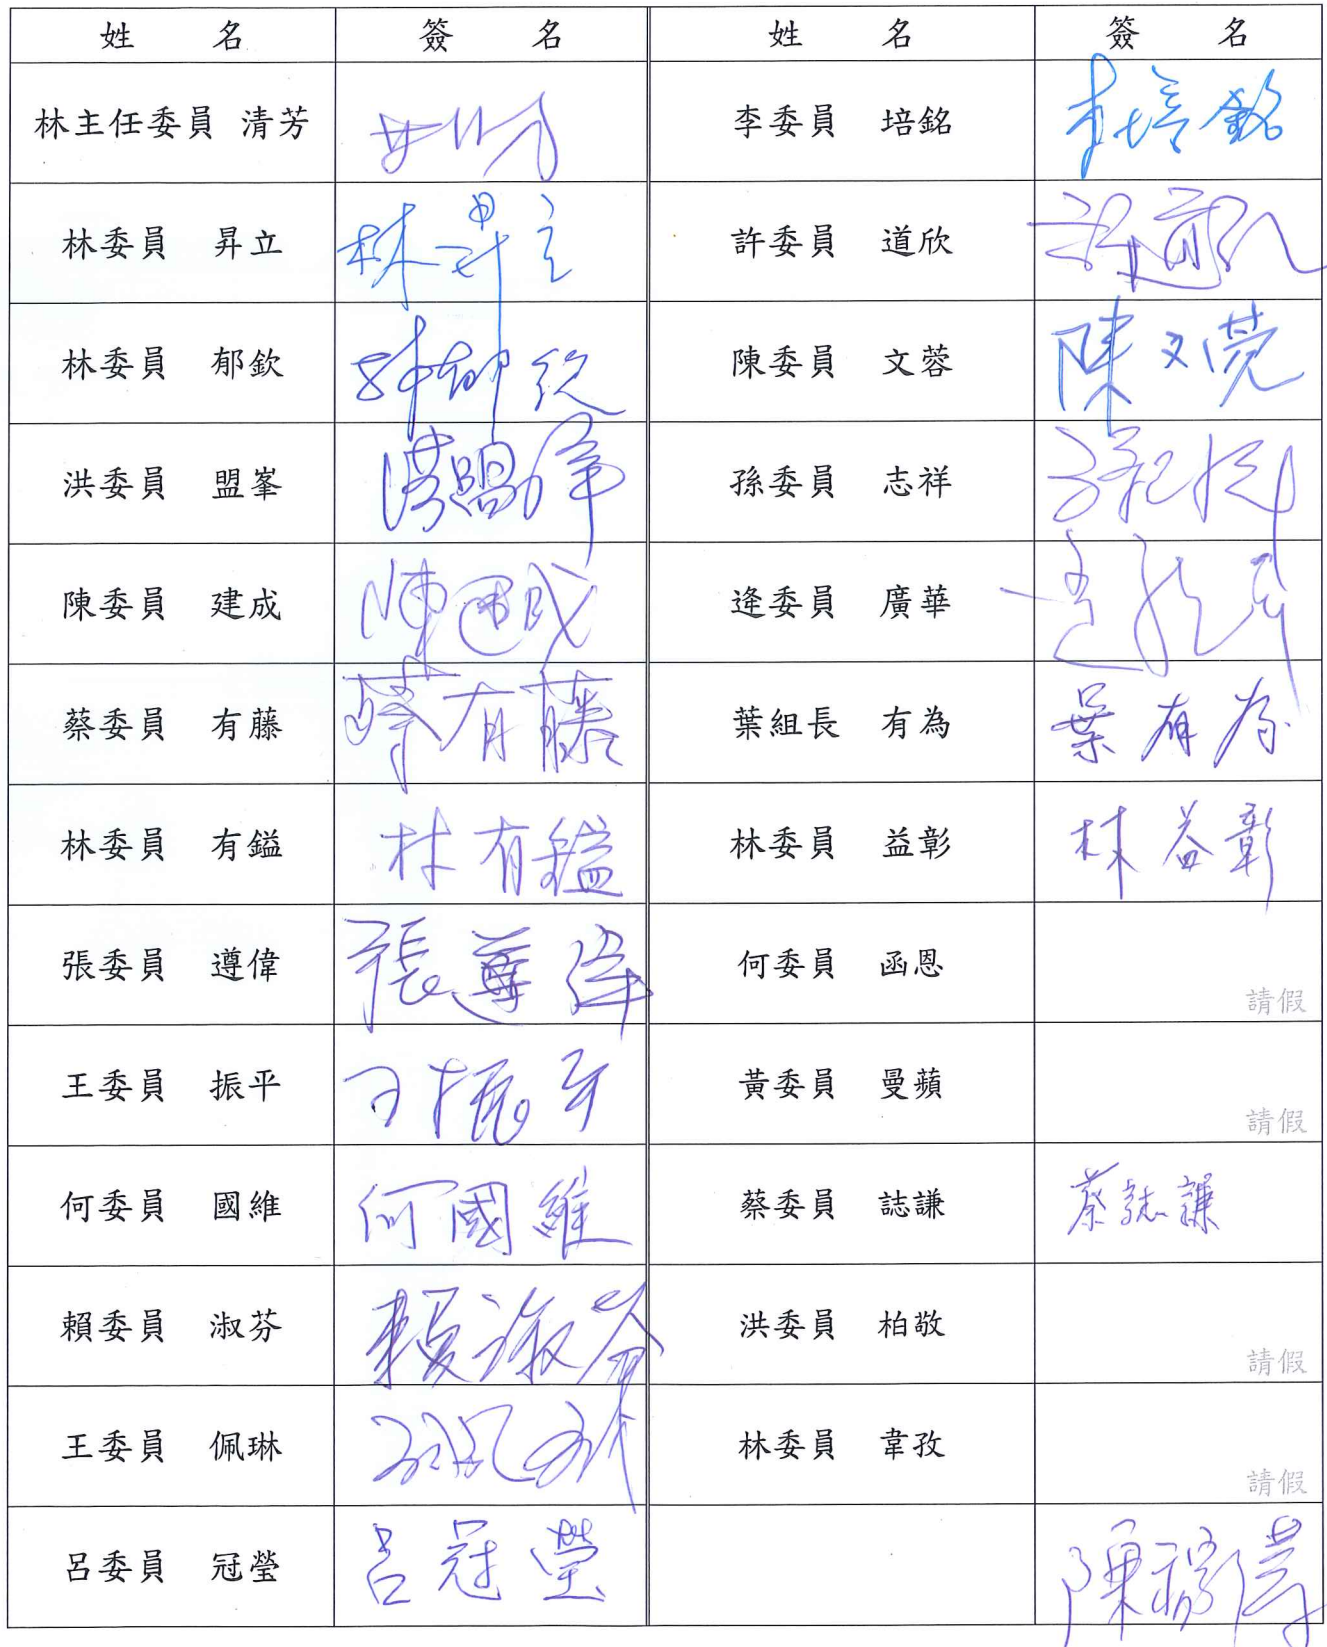 姓 名 簽 名 姓 名 簽 名
林主任委員 清芳 李委員 培銘 李培銘
林委員 昇立 林昇立 許委員 道欣
林委員 郁欽 陳委員 文蓉 陳文蓉
洪委員 盟峯 洪盟峯 孫委員 志祥
陳委員 建成 陳建成 逄委員 廣華
蔡委員 有藤 蔡有藤 葉組長 有為 葉有為
林委員 有鎰 林有鎰 林委員 益彰 林益彰
張委員 遵偉 張遵偉 何委員 函恩 請假
王委員 振平 王振平 黃委員 曼蘋 請假
何委員 國維 何國維 蔡委員 誌謙 蔡誌謙
賴委員 淑芬 賴淑芬 洪委員 柏敬 請假
王委員 佩琳 林委員 韋孜 請假
呂委員 冠瑩 呂冠瑩